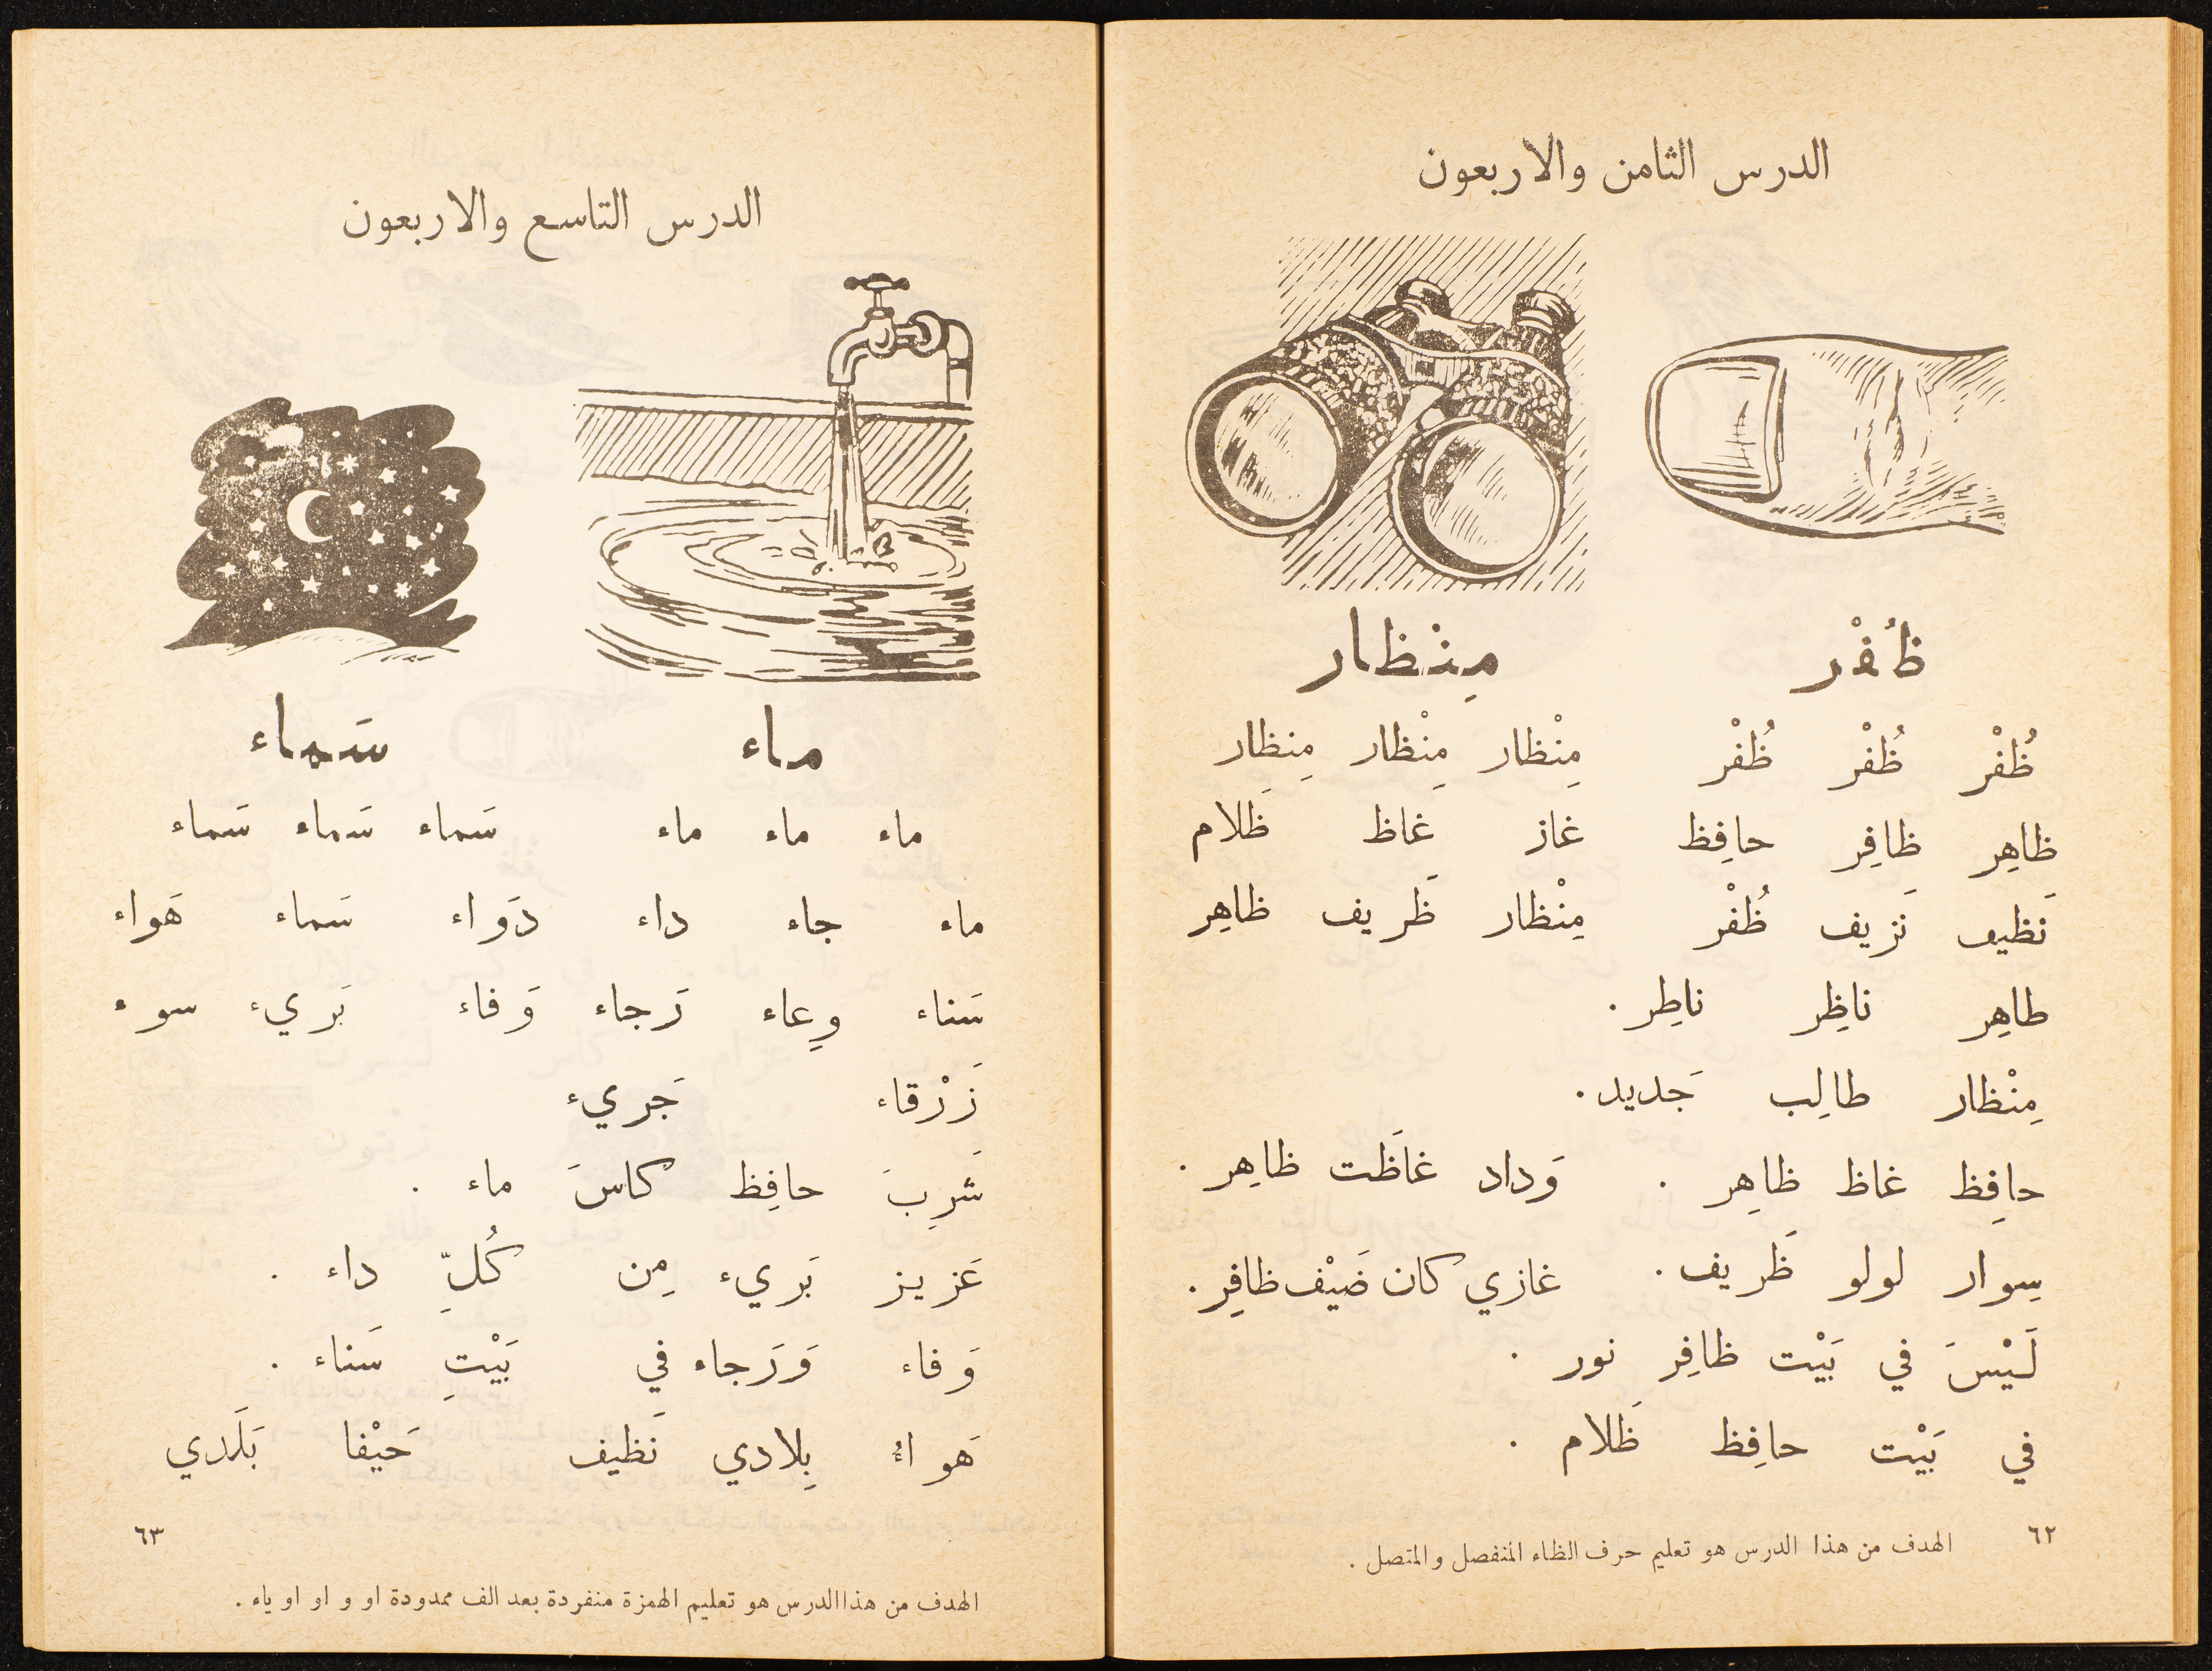 الدرس الثامن والاربعون
ظُفْر منْظار
ظُفْر ظُفْر ظُفْر مِنْظار مِنْظار مِنظار
ظاهِر ظافِر حافِظ غاز غاظ ظَلام
نَظيف نَزيف ظُفْر مِنْظار ظَريف ظاهِر
طاهِر ناظِر ناطِر .
مِنْظار طالِب جَديد .
حافِظ غاظ ظاهِر . وَداد غاظَت ظاهِر .
سِوار لولو ظَريف . غازي كان ضَيْف ظافِر .
لَيْسَ في بَيْت ظافِر نور .
في بَيْت حافِظ ظَلام .
٦٢
الهدف من هذا الدرس هو تعليم حرف الظاء المنفصل والمتصل .
الدرس التاسع والاربعون
ماء سَماء
ماء ماء ماء سَماء سَماء سَماء
ماء جاء داء دَواء سَماء هَواء
سَناء وِعاء رَجاء وَفاء بَريء سوء
زَرْقاء جَريء
شَرِبَ حافِظ كاسَ ماء .
عَزيز بَريء مِن كُلِّ داء .
وَفاء وَرَجاء في بَيْتِ سَناء .
هَواءُ بِلادي نَظيف حَيْفا بَلَدي
٦٣
الهدف من هذا الدرس هو تعليم الهمزة منفردة بعد الف ممدودة او و او او ياء .